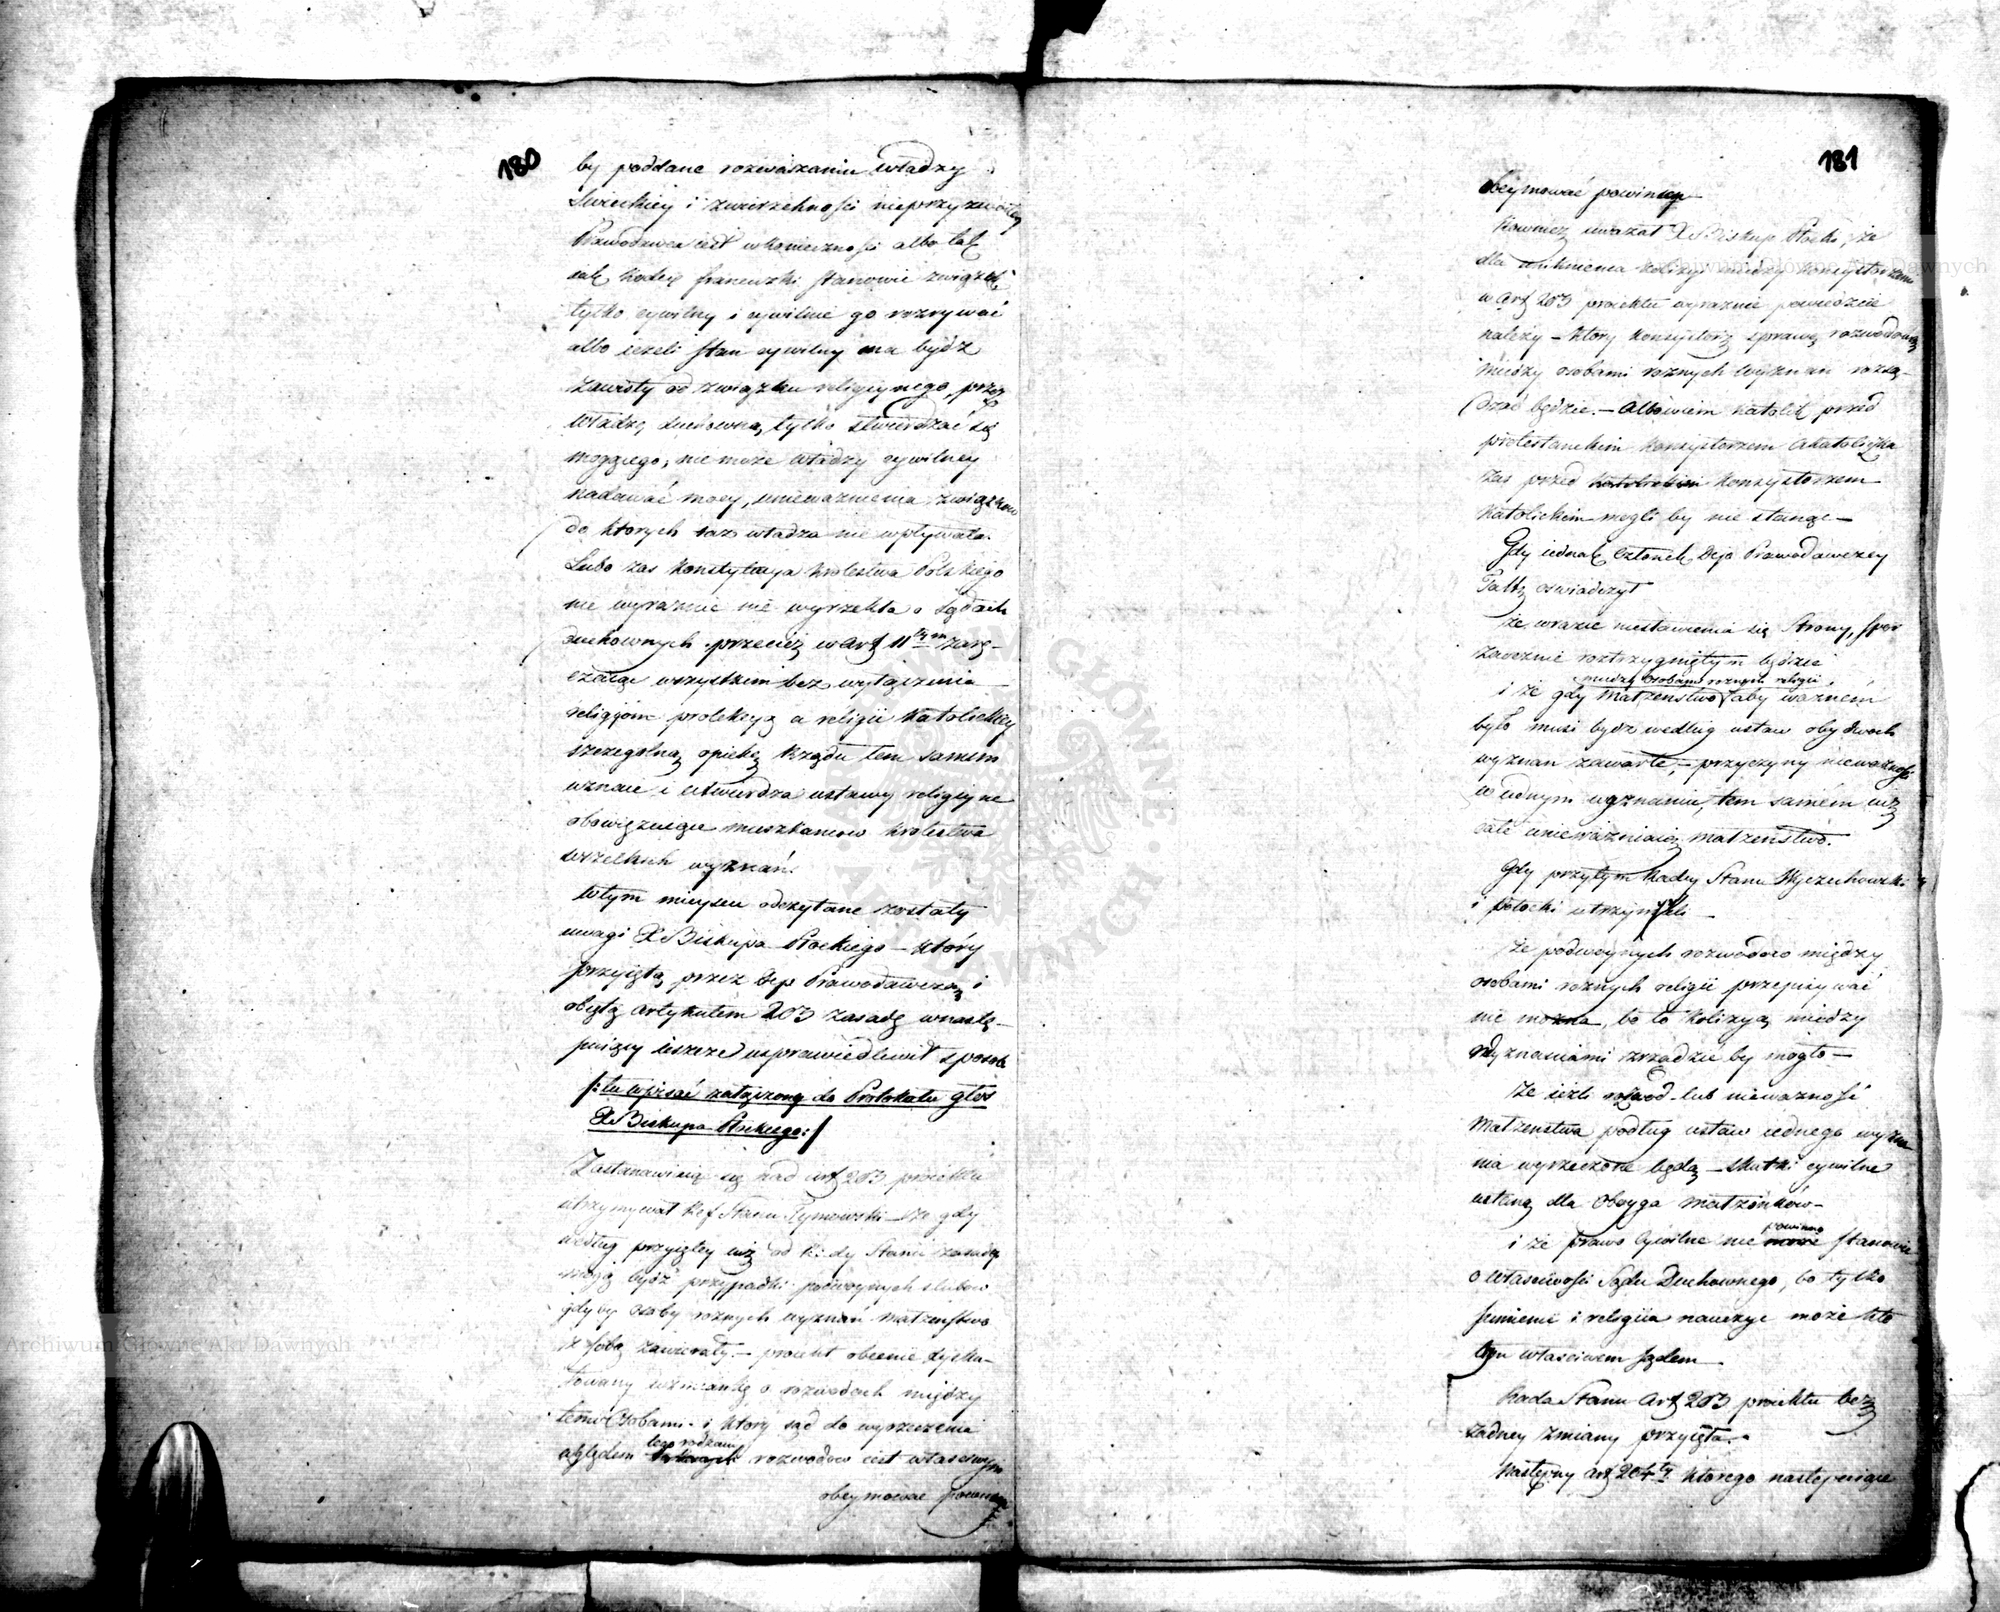 180
by poddane rozważaniu władzy
Swieckiey i zwierzchności nieprzyzwoitey
Prawodawca iest w konieczności albo tak
iak Kodex francuzki stanowić związek
tylko cywilny i cywilnie go rozrywać
albo ieżeli stan cywilny ma bydź
zawisły od związku religiynego, przez
władzę duchowną tylko stwierdzać się
mogącego, nie może władzy cywilney
nadawać mocy, unieważnienia związków
do ktorych taż władza nie wpływała.
Lubo zas Konstytucya Krolestwa Polskiego
nie wyraźnie nie wyrzekła o Sądach
duchownych przecież w Art 11tym zarę-
czaiąc wszystkim bez wyłączenia
religiom protekcyą a religii Katolickiey
szczegolną opiekę Rządu tem samem
uznaie i utwierdza ustawy religiyne
obowięzuiące mieszkancow Krolestwa
wszelkich wyznań.
W tym mieyscu odczytane zostały
uwagi X Biskupa Płockiego – który
przyiętą przez Dep Prawodawczą i
obiętą artykułem 203 zasadę w nastę-
puiący ieszcze usprawiedliwił sposob
/: tu wpisać załączony do Protokołu głos
X Biskupa Płockiego :/
Zastanawiaiąc się nad art 203 proiektu
utrzymywał Ref Stanu Tymowski – że gdy
według przyiętey iuż od R:dy Stanu zasady
mogą bydź przypadki podwoynych slubow
gdyby osoby rożnych wyznań małżeństwo
z sobą zawierały – proiekt obecnie dysku-
towany wzmiankę o rozwodach między
temi Osobami i ktory sąd do wyrzeczenia
względem tego rodzaiu rozwodow iest własciwym
obeymować powinien
181
obeymować powinien
Rownież uważał X Biskup Płocki, że
dla uniknienia kolizyi między konsystorzami
w Art 203 proiektu wyraznie powiedzieć
należy – ktory konsystorz sprawę rozwodową
między osobami rożnych wyznań rozsą-
dzać będzie. – Albowiem katolik przed
protestanckim konsystorzem Akatoliczka
zas przed konsystorzem
Katolickim mogli by nie stanąc –
Gdy iednak Członek Dep Prawodawczey
oswiadczył
że w razie niestawienia się Strony, spor
zaocznie roztrzygniętym będzie
między osobami rożnych religii
i że gdy Małżenstwo aby ważnem
było musi bydź według ustaw obydwoch
wyznan zawarte, – przyczyny nieważności
w iednym wyznaniu, tem samem iuż
całe unieważniaią małżenstwo.
Gdy przytym Radcy Stanu Wyczechowski
i Potocki utrzymywali –
że podwoynych rozwodow między
osobami rożnych religii przepisywać
nie można, bo to kolizyą między
wyznaniami zrządzić by mogło –
że ieżli rozwod lub nieważność
Małżenstwa podług ustaw iednego wyzna
nia wyrzeczone będą – skutki cywilne
ustaną dla Oboyga małżonków –
powinno
i że prawo Cywilne nie może stanowić
o własciwości Sądu Duchownego, bo tylko
sumienie i religia nauczyć może kto
tym własciwem sądem –
Rada Stanu Art 203 proiektu bez
żadney zmiany przyięła. –
Następny art 204ty ktorego następuiące